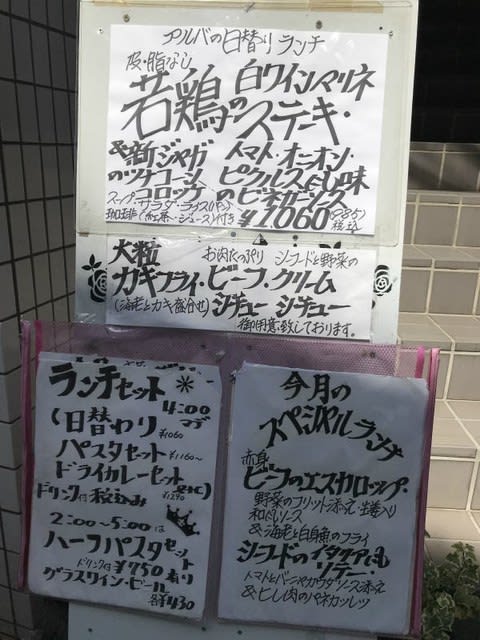 アルバの日替りランチ
皮・脂なし
若鶏の
白ワインマリネ
ステーキ・
&新ジャガ
のツナコーン
コロッケ
トマト・オニオン・
ピクルス
のビネガーソース
スープ・サラダ・ライス(パン)
珈琲(紅茶・ジュース)付き
¥1,060 (985)
税込
大粒
カキフライ・
(海老とカキ盛合せ)
お肉たっぷり
ビーフ・
シチュー
シーフードと野菜の
クリーム
シチュー
御用意致しております。
ランチセット
4:00
マデ
日替わり ¥1060
パスタセット ¥1160〜
ドライカレーセット
¥1290
ドリンク付 税込み
2:00〜5:00は
ハーフパスタセット
ドリンク付 ¥950より
グラスワイン・ビール
各¥430
今月の
スペシャルランチ
赤身
ビーフのエスカロップ・
野菜のフリット添え・生姜入り
和風ソース
&海老と白身魚のフライ
シーフードの
ソテー・
トマトとバーニャカウダソース添え
&ヒレ肉のパネカツレツ